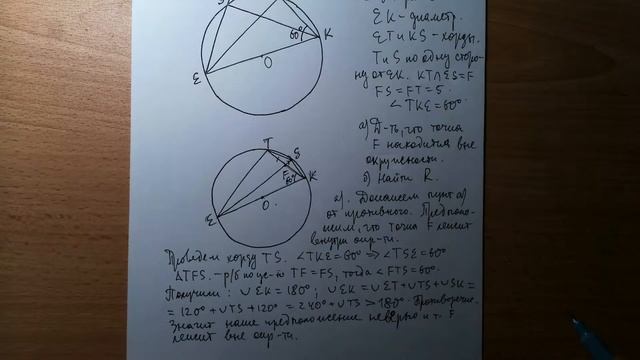 S
60°
K
E
O
EK – диаметр.
ET и KS – хорды.
T и S по одну сторо-
ну от EK. KT∩ES=F
FS = FT = 5.
∠TKE = 60°
а) Д-ть, что точка
F находится вне
окружности.
б) Найти R.
T
S
F
60°
K
E
O
а). Докажем пункт а)
от противного. Предполо-
жим, что точка F лежит
внутри окр-ти.
Проведем хорду TS. ∠TKE=60° ⇒ ∠TSE=60°
ΔTFS – р/б по ус-ю TF=FS, тогда ∠FTS=60°.
Получим: ∪EK=180°; ∪EK=∪ET+∪TS+∪SK=
= 120°+∪TS+120° = 240°+∪TS > 180°. Противоречие.
Значит наше предположение неверно и т. F
лежит вне окр-ти.